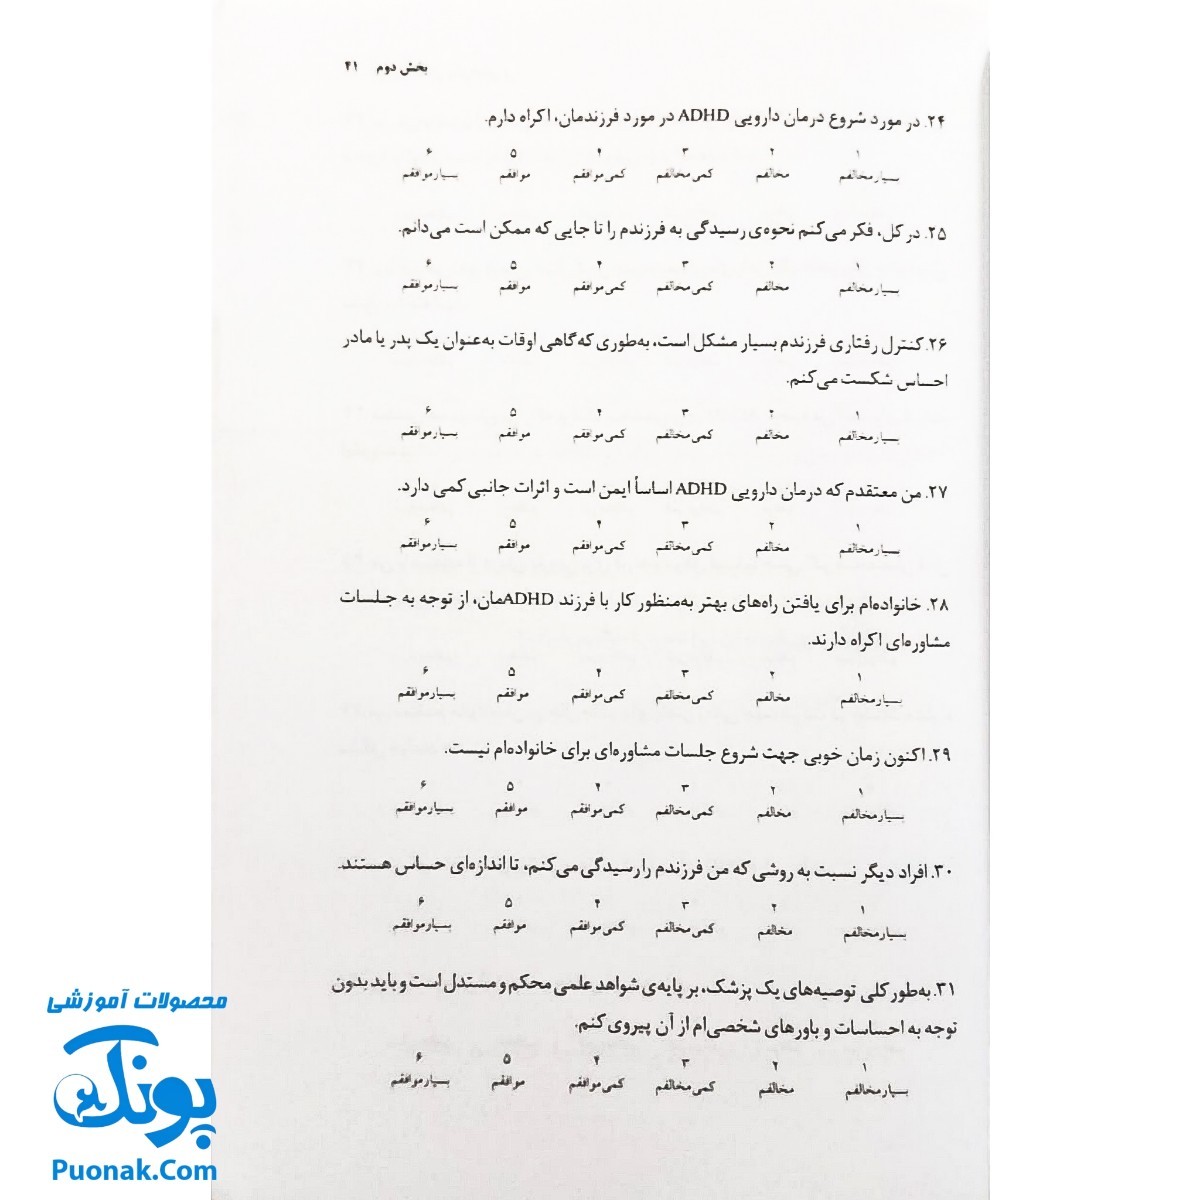 بخش دوم ۴۱
۲۴. در مورد شروع درمان دارویی ADHD در مورد فرزندمان، اکراه دارم.
۱ ۲ ۳ ۴ ۵ ۶
بسیار مخالفم مخالفم کمی مخالفم کمی موافقم موافقم بسیار موافقم
۲۵. در کل، فکر می‌کنم نحوه‌ی رسیدگی به فرزندم را تا جایی که ممکن است می‌دانم.
۱ ۲ ۳ ۴ ۵ ۶
بسیار مخالفم مخالفم کمی مخالفم کمی موافقم موافقم بسیار موافقم
۲۶. کنترل رفتاری فرزندم بسیار مشکل است، به‌طوری که گاهی اوقات به‌عنوان یک پدر یا مادر
احساس شکست می‌کنم.
۱ ۲ ۳ ۴ ۵ ۶
بسیار مخالفم مخالفم کمی مخالفم کمی موافقم موافقم بسیار موافقم
۲۷. من معتقدم که درمان دارویی ADHD اساساً ایمن است و اثرات جانبی کمی دارد.
۱ ۲ ۳ ۴ ۵ ۶
بسیار مخالفم مخالفم کمی مخالفم کمی موافقم موافقم بسیار موافقم
۲۸. خانواده‌ام برای یافتن راه‌های بهتر به‌منظور کار با فرزند ADHDمان، از توجه به جلسات
مشاوره‌ای اکراه دارند.
۱ ۲ ۳ ۴ ۵ ۶
بسیار مخالفم مخالفم کمی مخالفم کمی موافقم موافقم بسیار موافقم
۲۹. اکنون زمان خوبی جهت شروع جلسات مشاوره‌ای برای خانواده‌ام نیست.
۱ ۲ ۳ ۴ ۵ ۶
بسیار مخالفم مخالفم کمی مخالفم کمی موافقم موافقم بسیار موافقم
۳۰. افراد دیگر نسبت به روشی که من فرزندم را رسیدگی می‌کنم، تا اندازه‌ای حساس هستند.
۱ ۲ ۳ ۴ ۵ ۶
بسیار مخالفم مخالفم کمی مخالفم کمی موافقم موافقم بسیار موافقم
۳۱. به‌طور کلی توصیه‌های یک پزشک، بر پایه‌ی شواهد علمی محکم و مستدل است و باید بدون
توجه به احساسات و باورهای شخصی‌ام از آن پیروی کنم.
۱ ۲ ۳ ۴ ۵ ۶
بسیار مخالفم مخالفم کمی مخالفم کمی موافقم موافقم بسیار موافقم
محصولات آموزشی
پونک
Puonak.Com